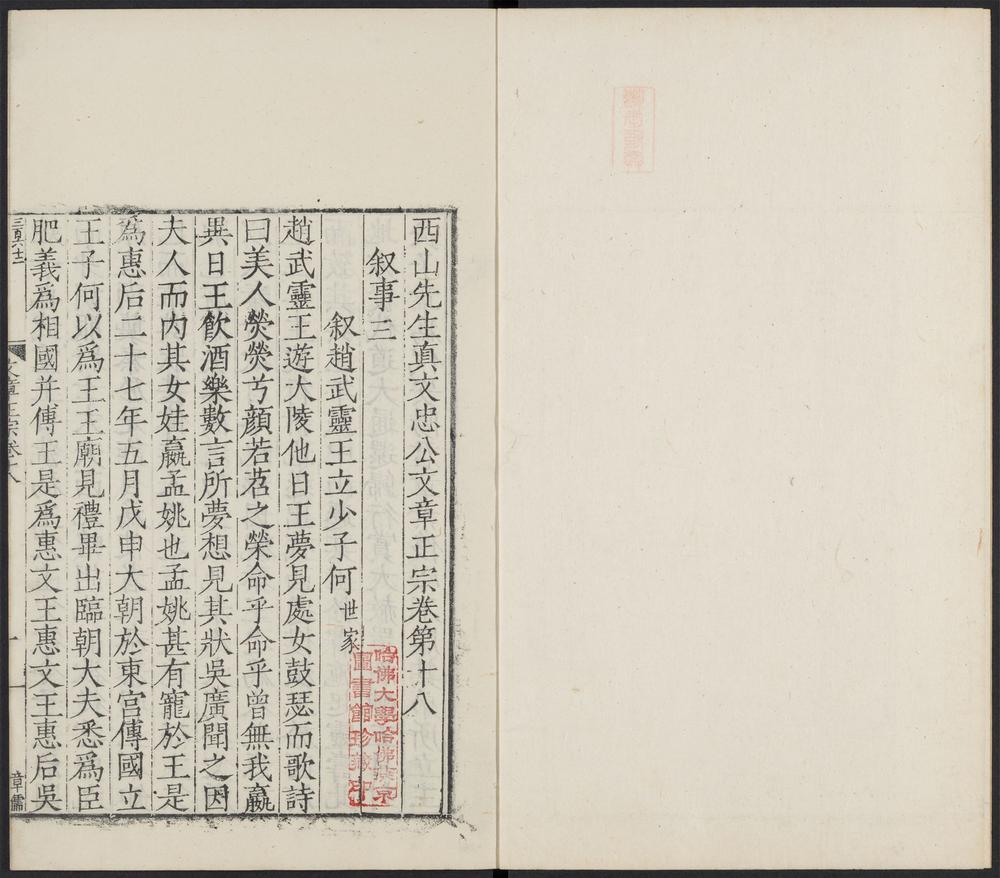 西山先生真文忠公文章正宗卷第十八
叙事三
叙趙武靈王立少子何 世家
趙武靈王遊大陵他日王夢見處女鼓瑟而歌詩
曰美人熒熒兮顏若苕之榮命乎命乎曾無我嬴
異日王飲酒樂數言所夢想見其狀吳廣聞之因
夫人而内其女娃嬴孟姚也孟姚甚有寵於王是
為惠后二十七年五月戊申大朝於東宫傳國立
王子何以爲王王廟見禮畢出臨朝大夫悉爲臣
肥義爲相國并傅王是爲惠文王惠文王惠后吳
文章正宗卷十八
一
章儒
哈佛大學哈佛燕京
圖書館珍藏印